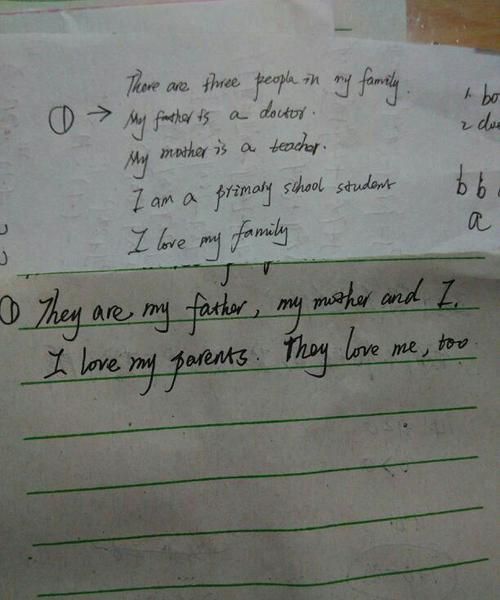 There are three people in my family.
① → My father is a doctor.
My mother is a teacher.
I am a primary school student
I love my family
1 bo
2 do
b b
a
① They are my father, my mother and I.
I love my parents. They love me, too.